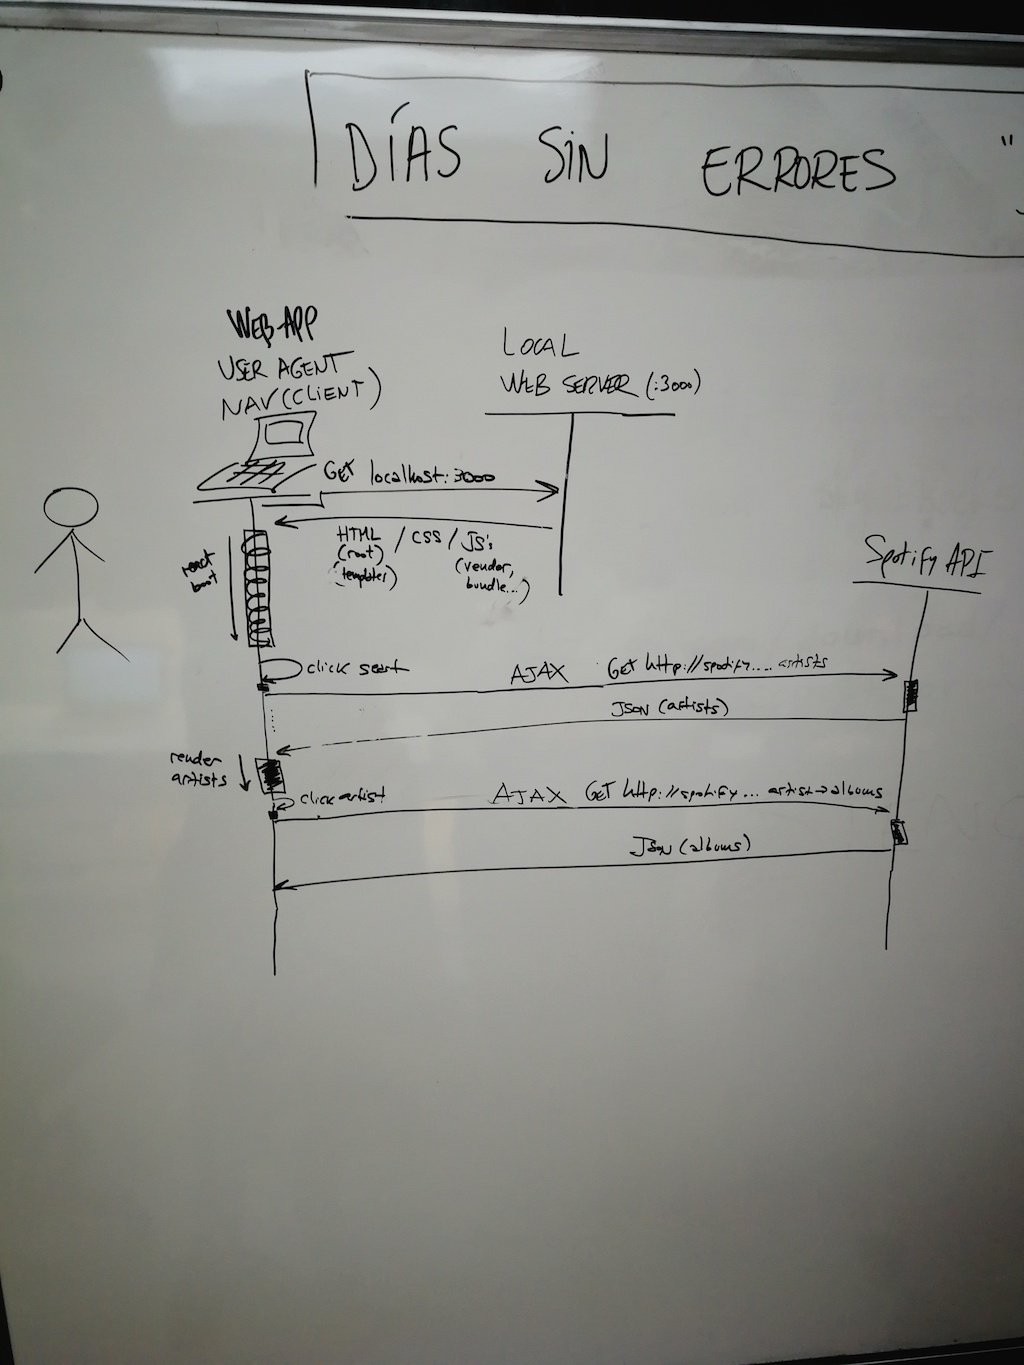 DÍAS SIN ERRORES "
WEB APP
USER AGENT
NAV (CLIENT)
LOCAL
WEB SERVER (:3000)
GET localhost:3000
HTML / CSS / JS's
(root) (vendor,
(templates) bundle...)
react
boot
Spotify API
click search
AJAX GET http://spotify.... artists
JSON (artists)
render
artists
click artist
AJAX GET http://spotify... artist→albums
JSON (albums)